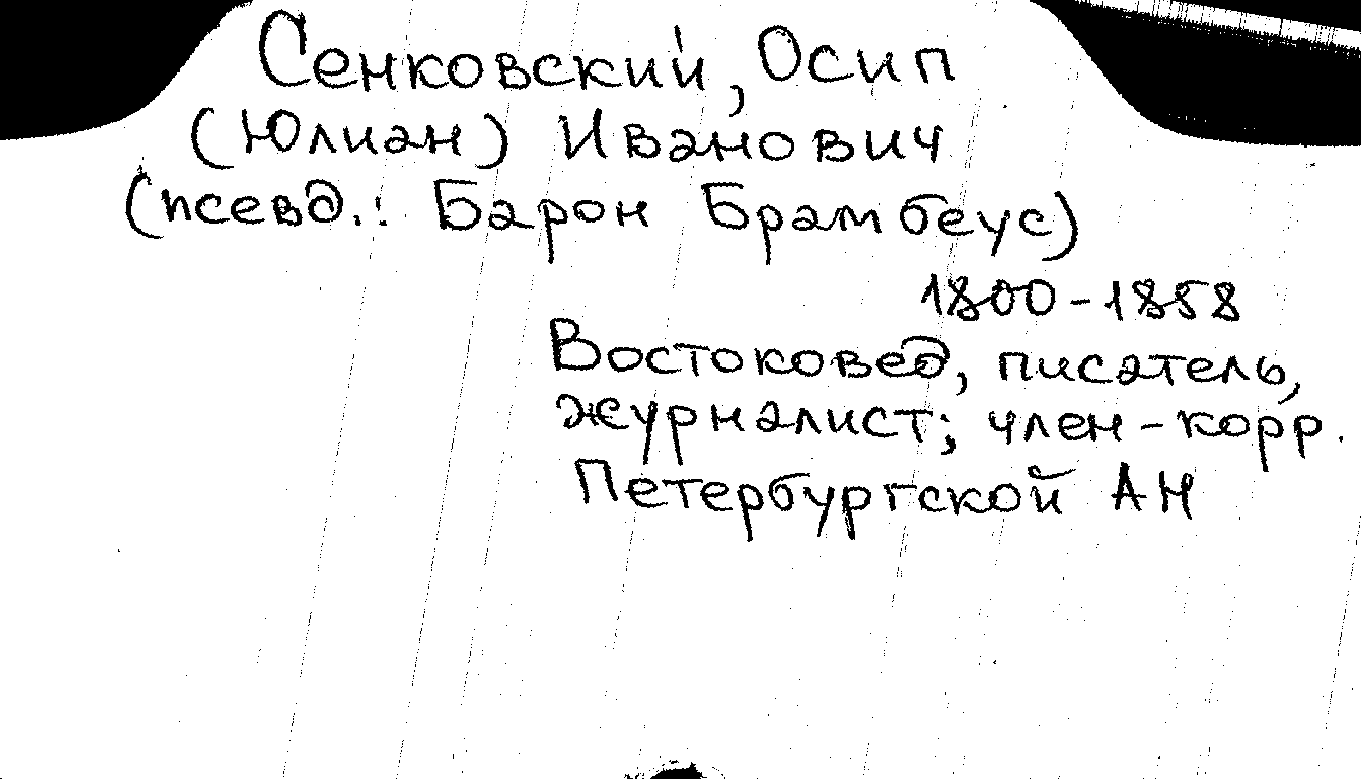 Сенковский, Осип
(Юлиан) Иванович
(псевд.: Барон Брамбеус)
1800-1858
Востоковед, писатель,
журналист; член-корр.
Петербургской АН